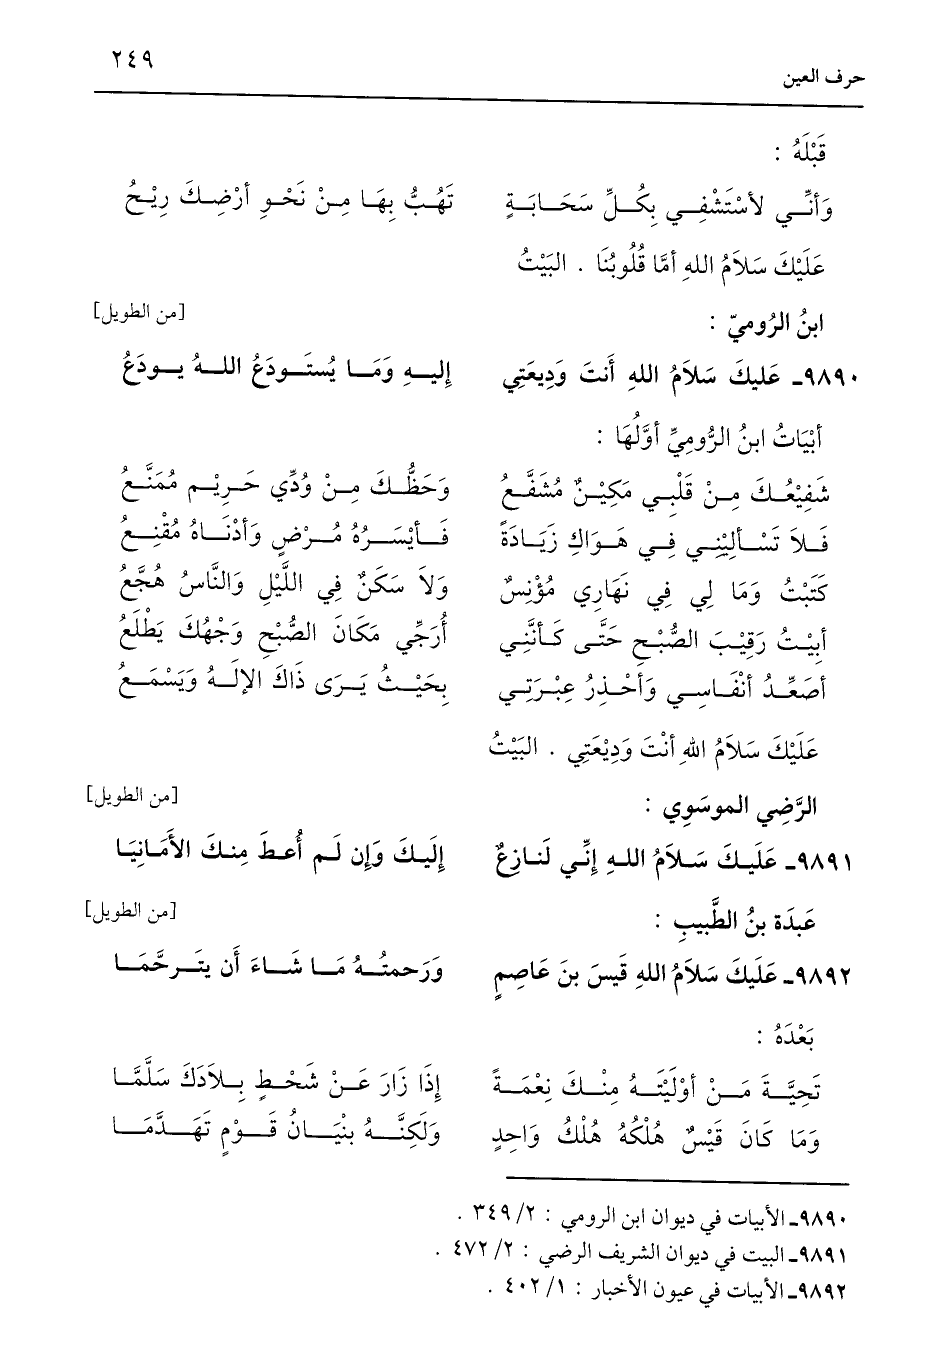 حرف العين ٢٤٩
قَبْلَهُ :
وَأَنِّي لأسْتَشْفِي بِكُلِّ سَحَابَةٍ تَهُبُّ بِهَا مِنْ نَحْوِ أرْضِكَ رِيْحُ
عَلَيْكَ سَلاَمُ اللهِ أمَّا قُلُوبُنَا . البَيْتُ
ابنُ الرُوميّ : [من الطويل]
٩٨٩٠ـ عَليكَ سَلاَمُ اللهِ أَنتَ وَدِيعَتِي إليهِ وَمَا يُستَودَعُ اللهُ يودَعُ
أبْيَاتُ ابنُ الرُّومِيِّ أوَّلُهَا :
شَفِيْعُكَ مِنْ قَلْبِي مَكِيْنٌ مُشَفَّعُ وَحَظُّكَ مِنْ وُدِّي حَرِيْمٍ مُمَنَّعُ
فَلاَ تَسْألِيْنِي فِي هَوَاكِ زِيَادَةً فَأيْسَرُهُ مُرْضٍ وَأدْنَاهُ مُقْنِعُ
كَتَبْتُ وَمَا لِي فِي نَهَارِي مُؤْنِسٌ وَلاَ سَكَنٌ فِي اللَّيْلِ وَالنَّاسُ هُجَّعُ
أبِيْتُ رَقِيْبَ الصُّبْحِ حَتَّى كَأنَّنِي أُرَجِّي مَكَانَ الصُّبْحِ وَجْهُكَ يَطْلَعُ
أصَعِّدُ أنْفَاسِي وَأحْذِرُ عِبْرَتِي بِحَيْثُ يَرَى ذَاكَ الإلَهُ وَيَسْمَعُ
عَلَيْكَ سَلاَمُ اللهِ أنْتَ وَدِيْعَتِي . البَيْتُ
الرَّضِي الموسَوِي : [من الطويل]
٩٨٩١ـ عَلَيكَ سَلاَمُ اللهِ إنِّي لَنازِعٌ إلَيكَ وَإن لَم أُعطَ مِنكَ الأَمَانِيَا
عَبدَة بنُ الطَّبيبِ : [من الطويل]
٩٨٩٢ـ عَلَيكَ سَلاَمُ اللهِ قَيسَ بنَ عَاصِمٍ وَرَحمتُهُ مَا شَاءَ أن يتَرحَّمَا
بَعْدَهُ :
تَحِيَّةَ مَنْ أوْلَيْتَهُ مِنْكَ نِعْمَةً إذَا زَارَ عَنْ شَحْطٍ بِلاَدَكَ سَلَّمَا
وَمَا كَانَ قَيْسٌ هُلْكُهُ هُلْكُ وَاحِدٍ وَلَكِنَّهُ بُنْيَانُ قَوْمٍ تَهَدَّمَا
٩٨٩٠ـ الأبيات في ديوان ابن الرومي : ٢/ ٣٤٩ .
٩٨٩١ـ البيت في ديوان الشريف الرضي : ٢/ ٤٧٢ .
٩٨٩٢ـ الأبيات في عيون الأخبار : ١/ ٤٠٢ .